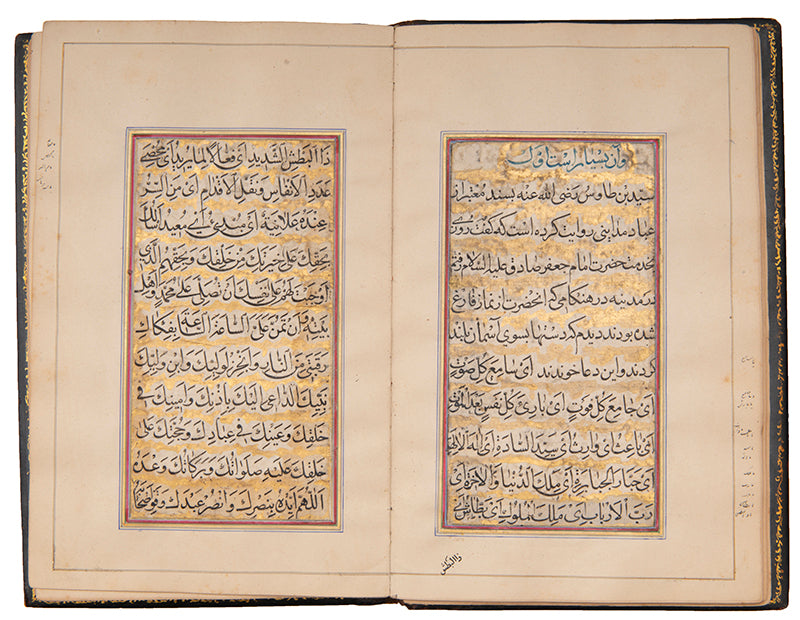 وآن بسیار است اول
سید بن طاوس رضی الله عنه بسند معتبر از
عباد مداینی روایت کرده است که گفت روزی
بخدمت حضرت امام جعفر صادق علیه السلام رفتم
در مدینه در هنگامی که آنحضرت از نماز فارغ
شده بودند دیدم که دستها بسوی آسمان بلند
کردند و این دعا خوندند ای سامع کل صوت
ای جامع کل فوت ای بارئ کل نفس بعد الموت
ای باعث ای وارث ای سید السادة ای اله الالهة
ای جبار الجبابرة ای ملک الدنیا والاخرة ای
رب الارباب ای ملک الملوک ای بطاش ای
ذا البطش
ذا البطش الشدید ای فعالا لما یرید ای محصی
عدد الانفاس ونقل الاقدام ای من السر
عنده علانیة ای مبدئ ای معید اسألک
بحقک علی خیرتک من خلقک وبحقهم الذی
اوجبت لهم علی نفسک ان تصلی علی محمد واهل
بیته وان تمن علی الساعة الساعة بفکاک
رقبتی من النار وانجز لولیک وابن ولیک
الداعی الیک باذنک وامینک فی
خلقک وعینک فی عبادک وحجتک علی
خلقک علیه صلواتک وبرکاتک وعده
اللهم ایده بنصرک وانصر عبدک وقو اصحابه